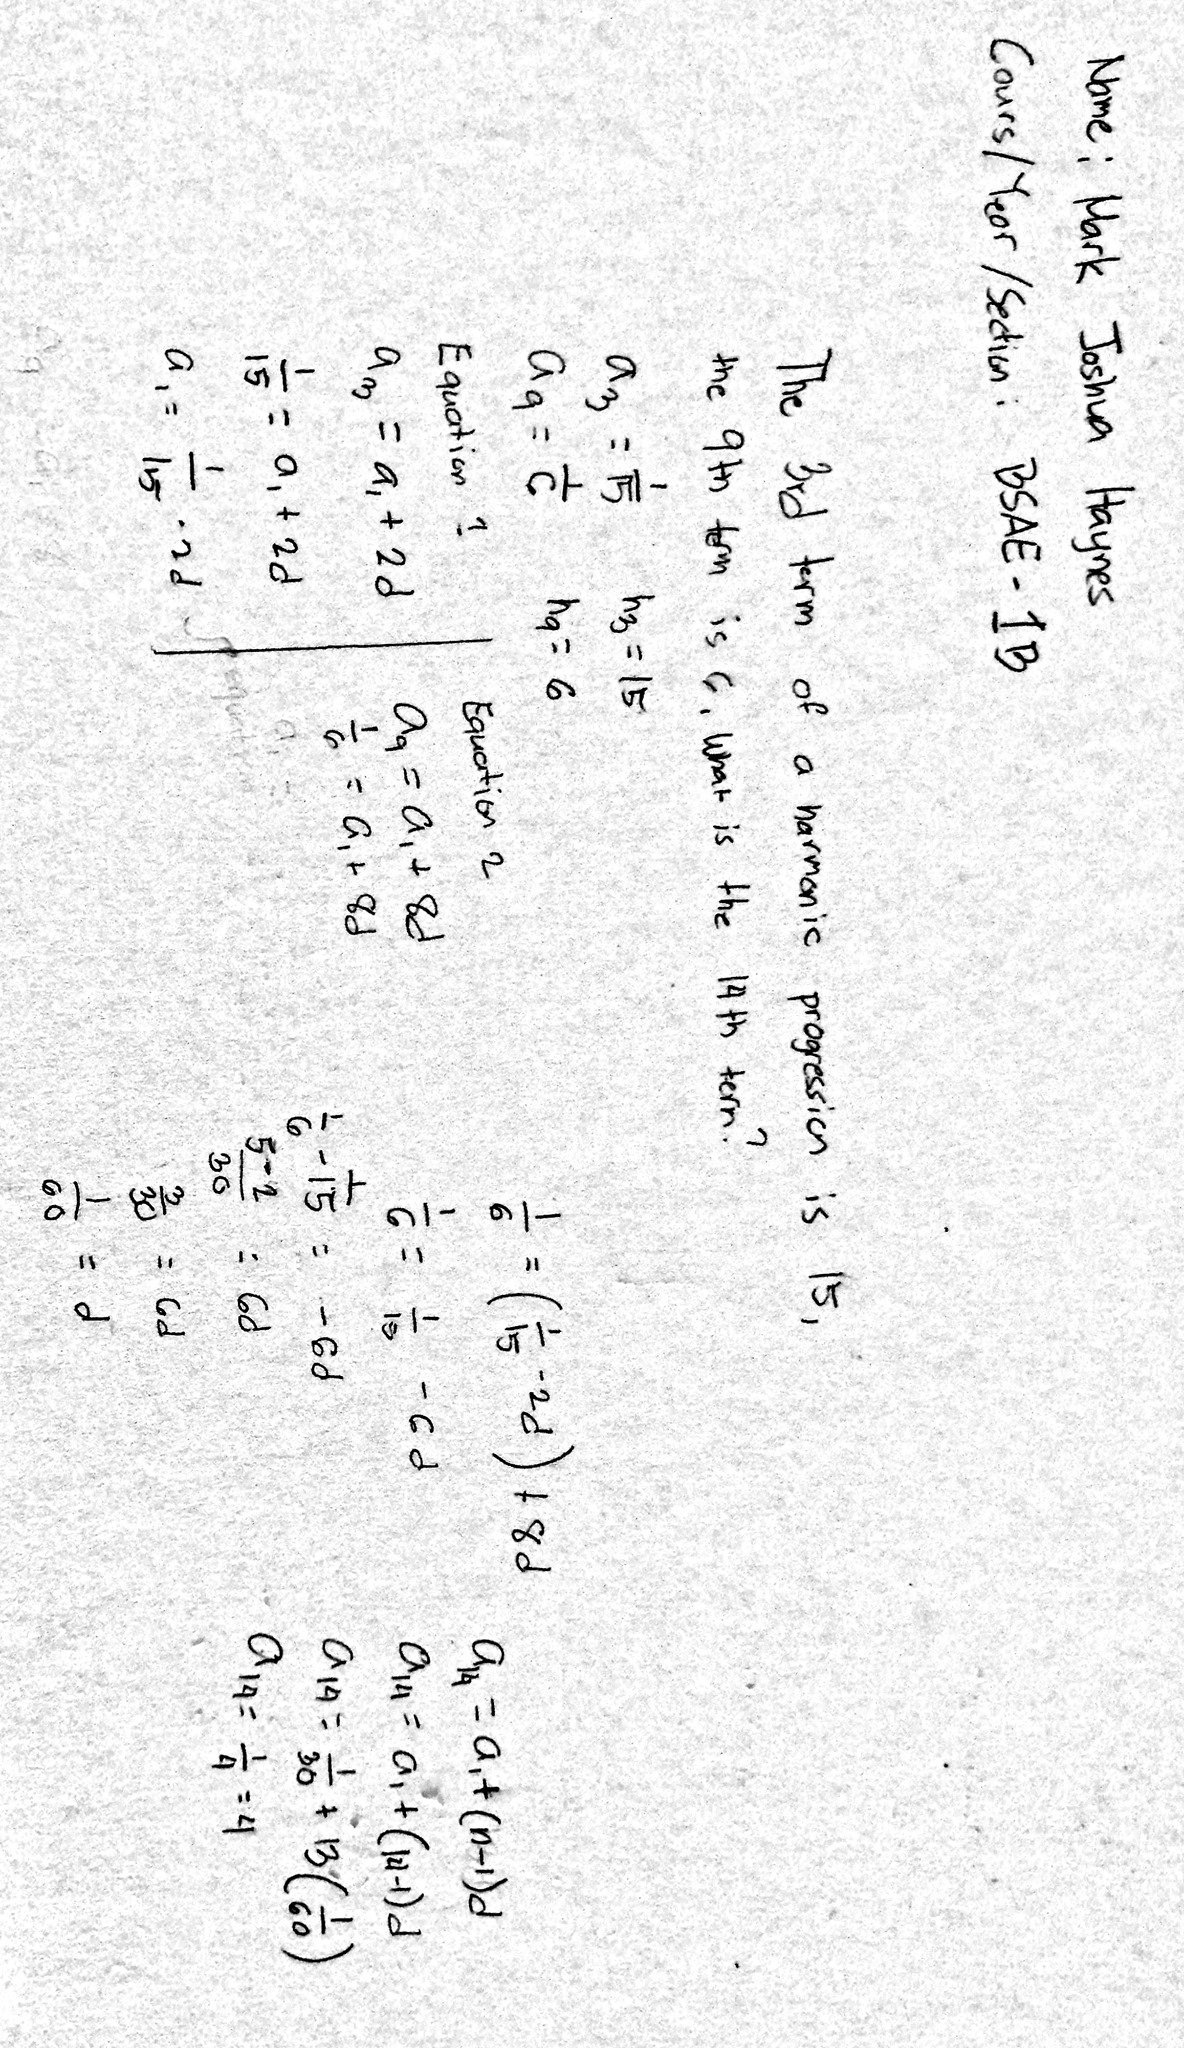 Name: Mark Joshua Haynes
Cours/Year/Section: BSAE-1B
The 3rd term of a harmonic progression is 15,
the 9th term is 6, What is the 14th term?
a₃ = 1/15 h₃ = 15
a₉ = 1/6 h₉ = 6
Equation 1
a₃ = a₁ + 2d
1/15 = a₁ + 2d
a₁ = 1/15 - 2d
Equation 2
a₉ = a₁ + 8d
1/6 = a₁ + 8d
1/6 = (1/15 - 2d) + 8d
1/6 = 1/15 - 6d
1/6 - 1/15 = -6d
5-2/30 = 6d
3/30 = 6d
1/60 = d
a₁₄ = a₁ + (n-1)d
a₁₄ = a₁ + (14-1)d
a₁₄ = 1/30 + 13(1/60)
a₁₄ = 1/4 = 4